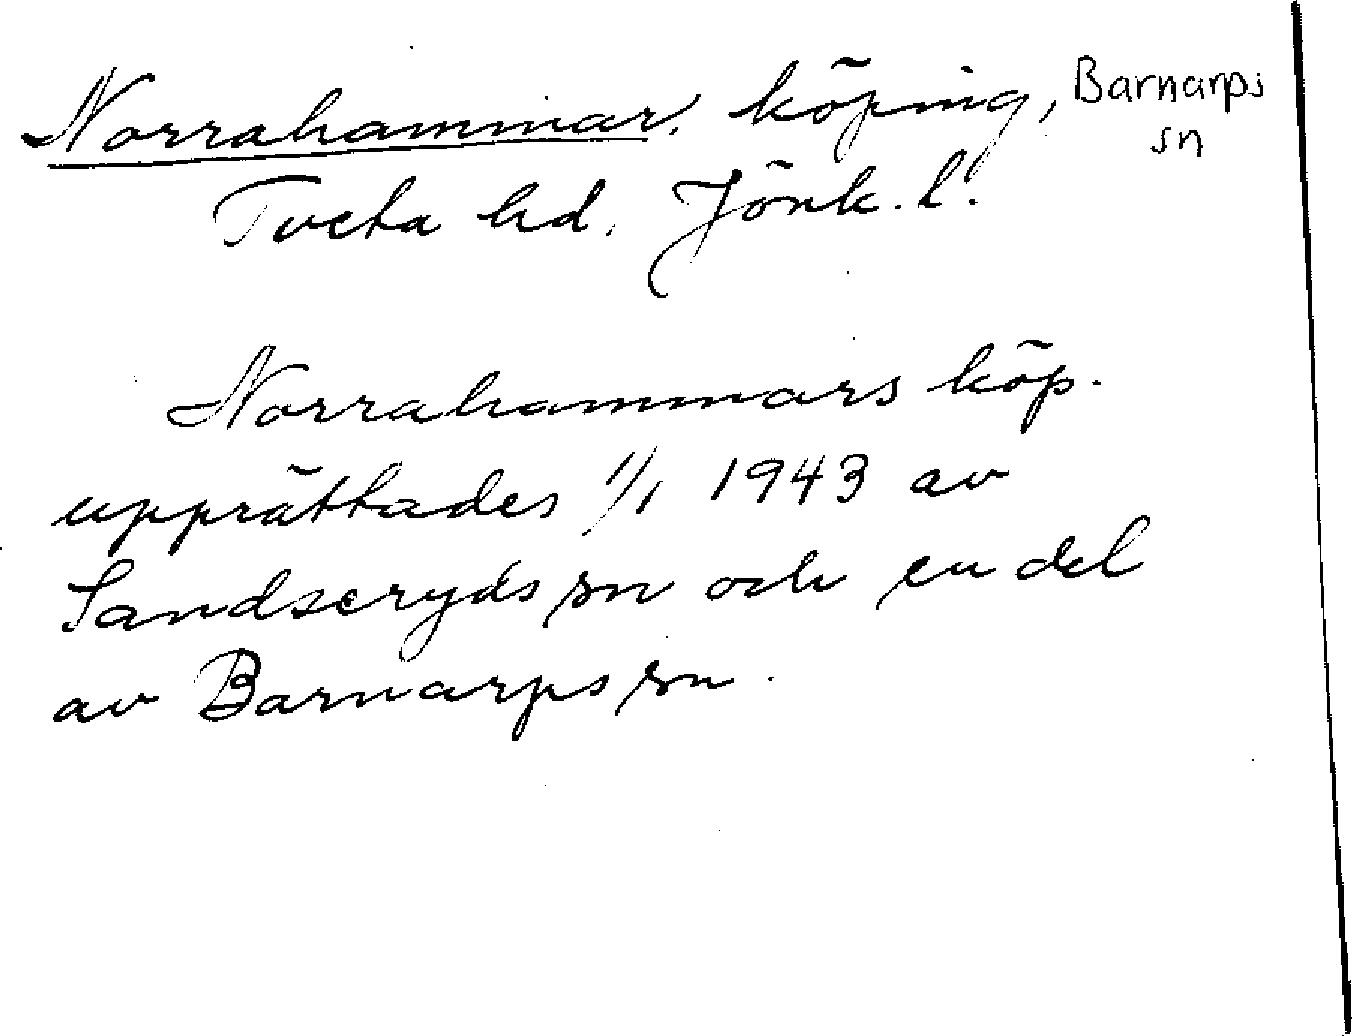 Norrahammar, köping, Barnarps
sn
Tveta hd. Jönk. l.
Norrahammars köp.
upprättades 1/1 1943 av
Sandseryds sn och en del
av Barnarps sn.